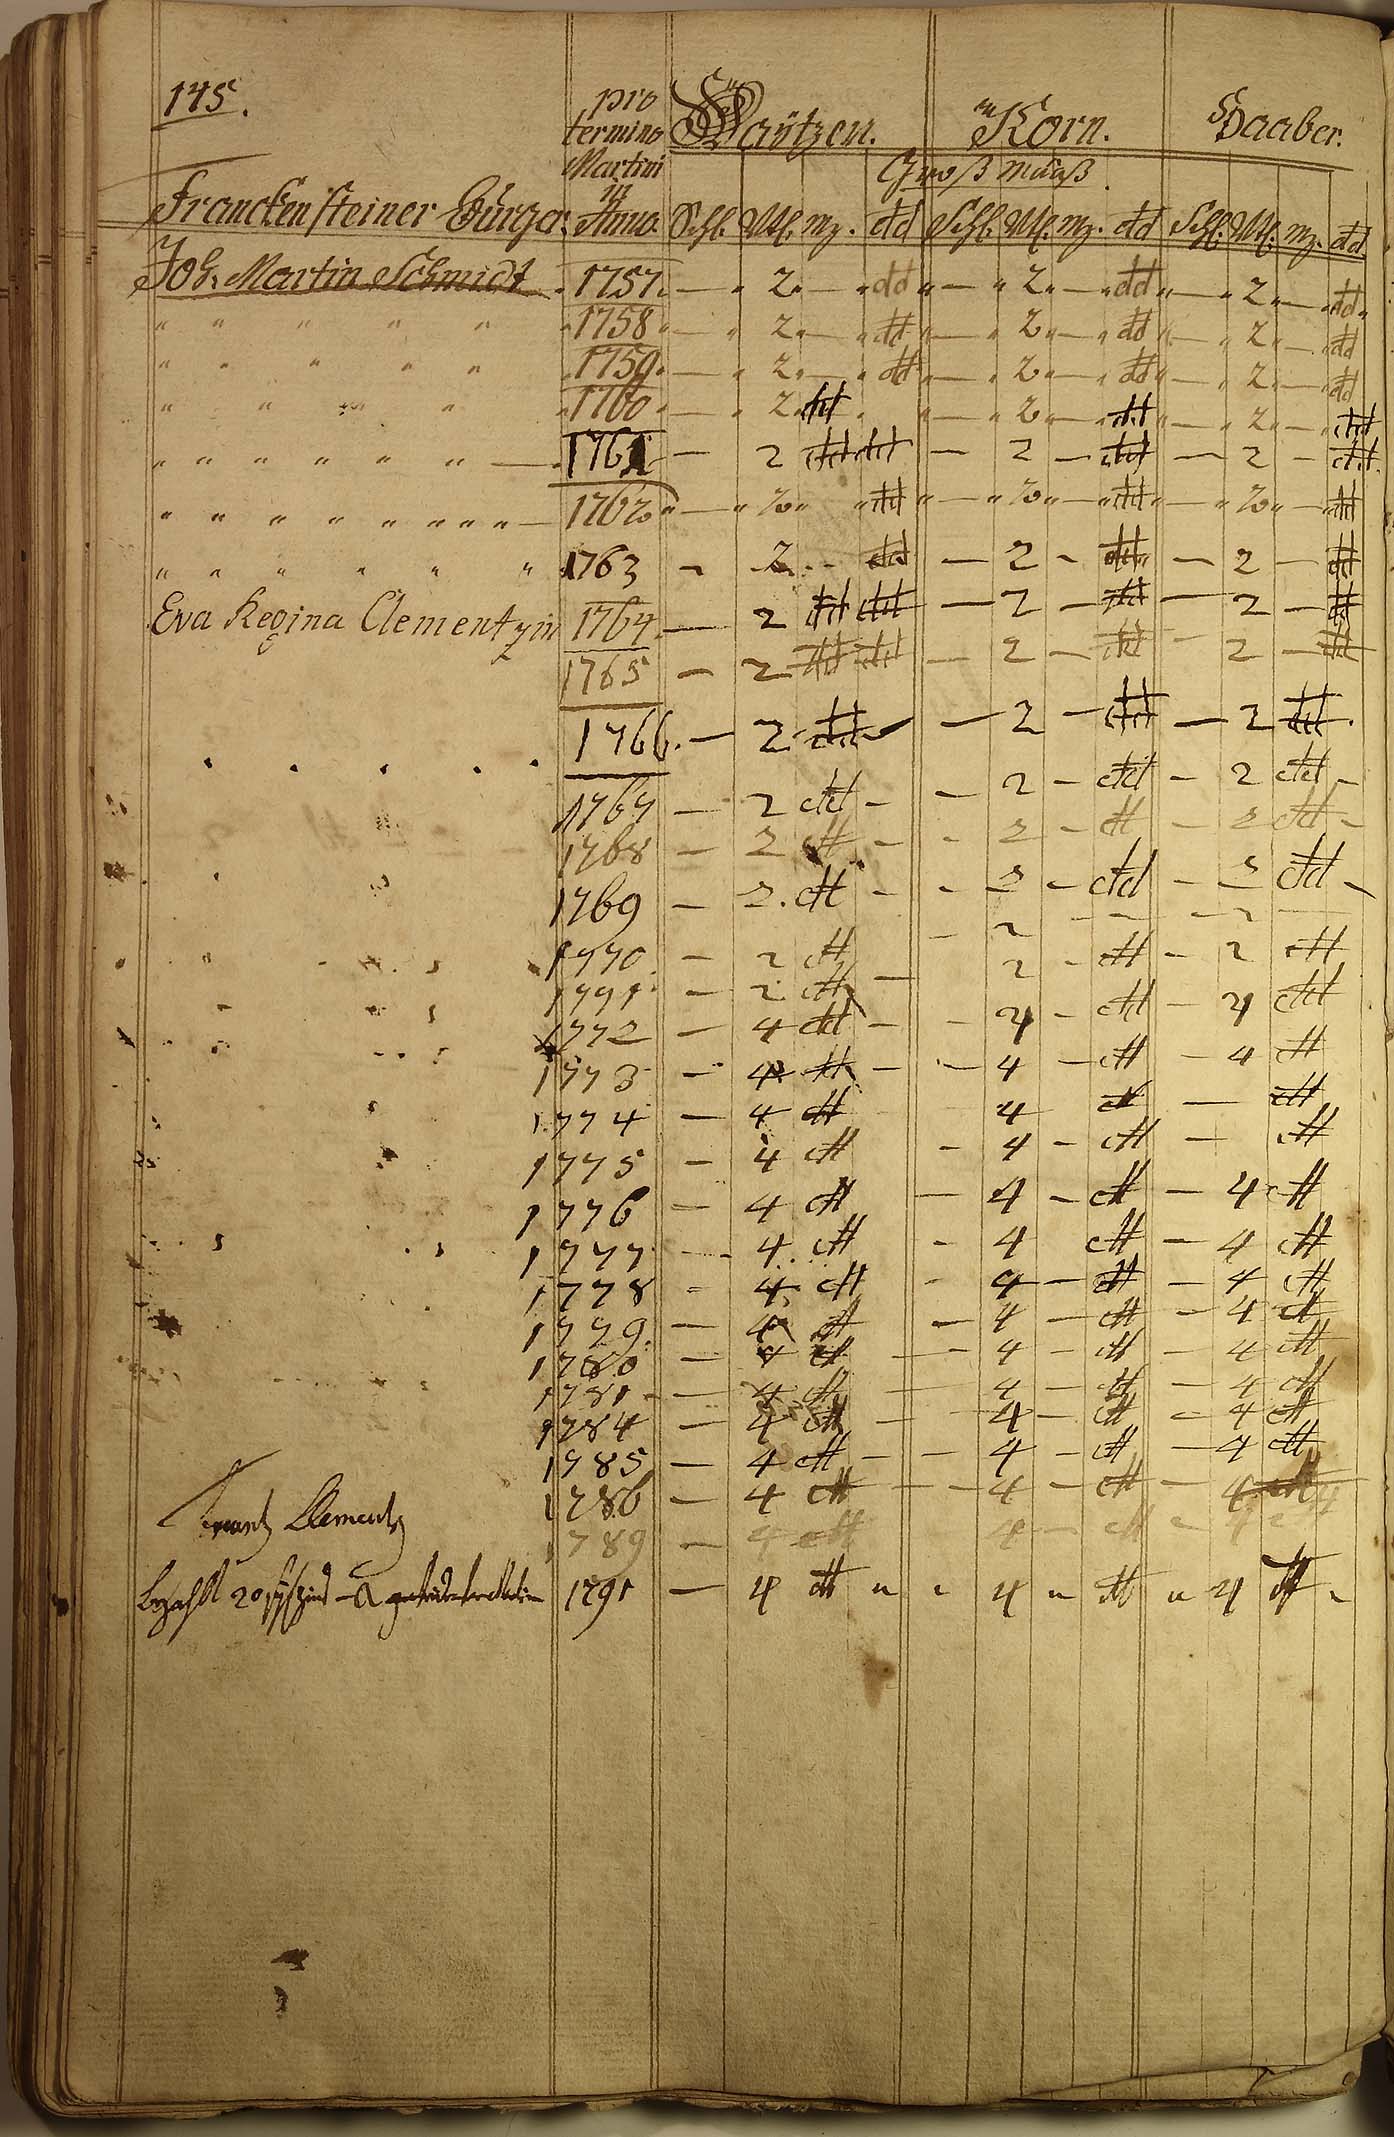 145.
pro termino Martini in Anno.
Waÿtzen. Korn. Haaber.
Groß Maaß.
Franckensteiner Bürger.
Schl. Vtl. mz. dd Schl. Vtl. mz. dd Schl. Vtl. mz. dd
Joh. Martin Schmidt 1757. — 2. — dd — 2 — dd — 2 — dd
" " " " " 1758 — 2. — dd — 2 — dd — 2 — dd
" " " " " 1759. — 2. — dd — 2 — dd — 2 — dd
" " " " 1760 — 2. dd — 2 — dd — 2 — dd
" " " " " " — 1761 — 2 dd dd — 2 — dd — 2 — dd
" " " " " " " " " — 1762 — 2 dd — 2 — dd — 2 — dd
" " " " " " 1763 — 2 — dd — 2 — dd — 2 — dd
Eva Regina Clementzin 1764 — 2 dd dd — 2 — dd — 2 — dd
1765 — 2 dd dd — 2 — dd — 2 — dd
1766. — 2 dd — 2 — dd — 2 dd
1767 — 2 dd — — 2 — dd — 2 dd —
1768 — 2 dd — — 2 — dd — 2 dd —
1769 — 2. dd — — 2 — dd — 2 dd —
1770 — 2 dd — 2 — — — 2 —
1771 — 2 dd — 2 — dd — 2 dd
1772 — 4 dd — — 4 — dd — 4 dd
1773 — 4 dd — — 4 — dd — 4 dd
1774 — 4 dd 4 dd — dd
1775 — 4 dd — 4 — dd — dd
1776 — 4 dd — 4 — dd — 4 dd
1777 — 4 dd — 4 dd — 4 dd
1778 — 4 dd — 4 — dd — 4 dd
1779. — 4 dd — 4 — dd — 4 dd
1780 — 4 dd — 4 — dd — 4 dd
1781 — 4 dd — 4 — dd — 4 dd
1784 — 4 dd — — 4 — dd — 4 dd
1785 — 4 dd — — 4 — dd — 4 dd
1786 — 4 dd — — 4 — dd — 4
Frantz Clementz
1789 — 4 dd 4 — dd — 4
bezahlt 20 1791 — 4 dd — — 4 — dd — 4 dd —